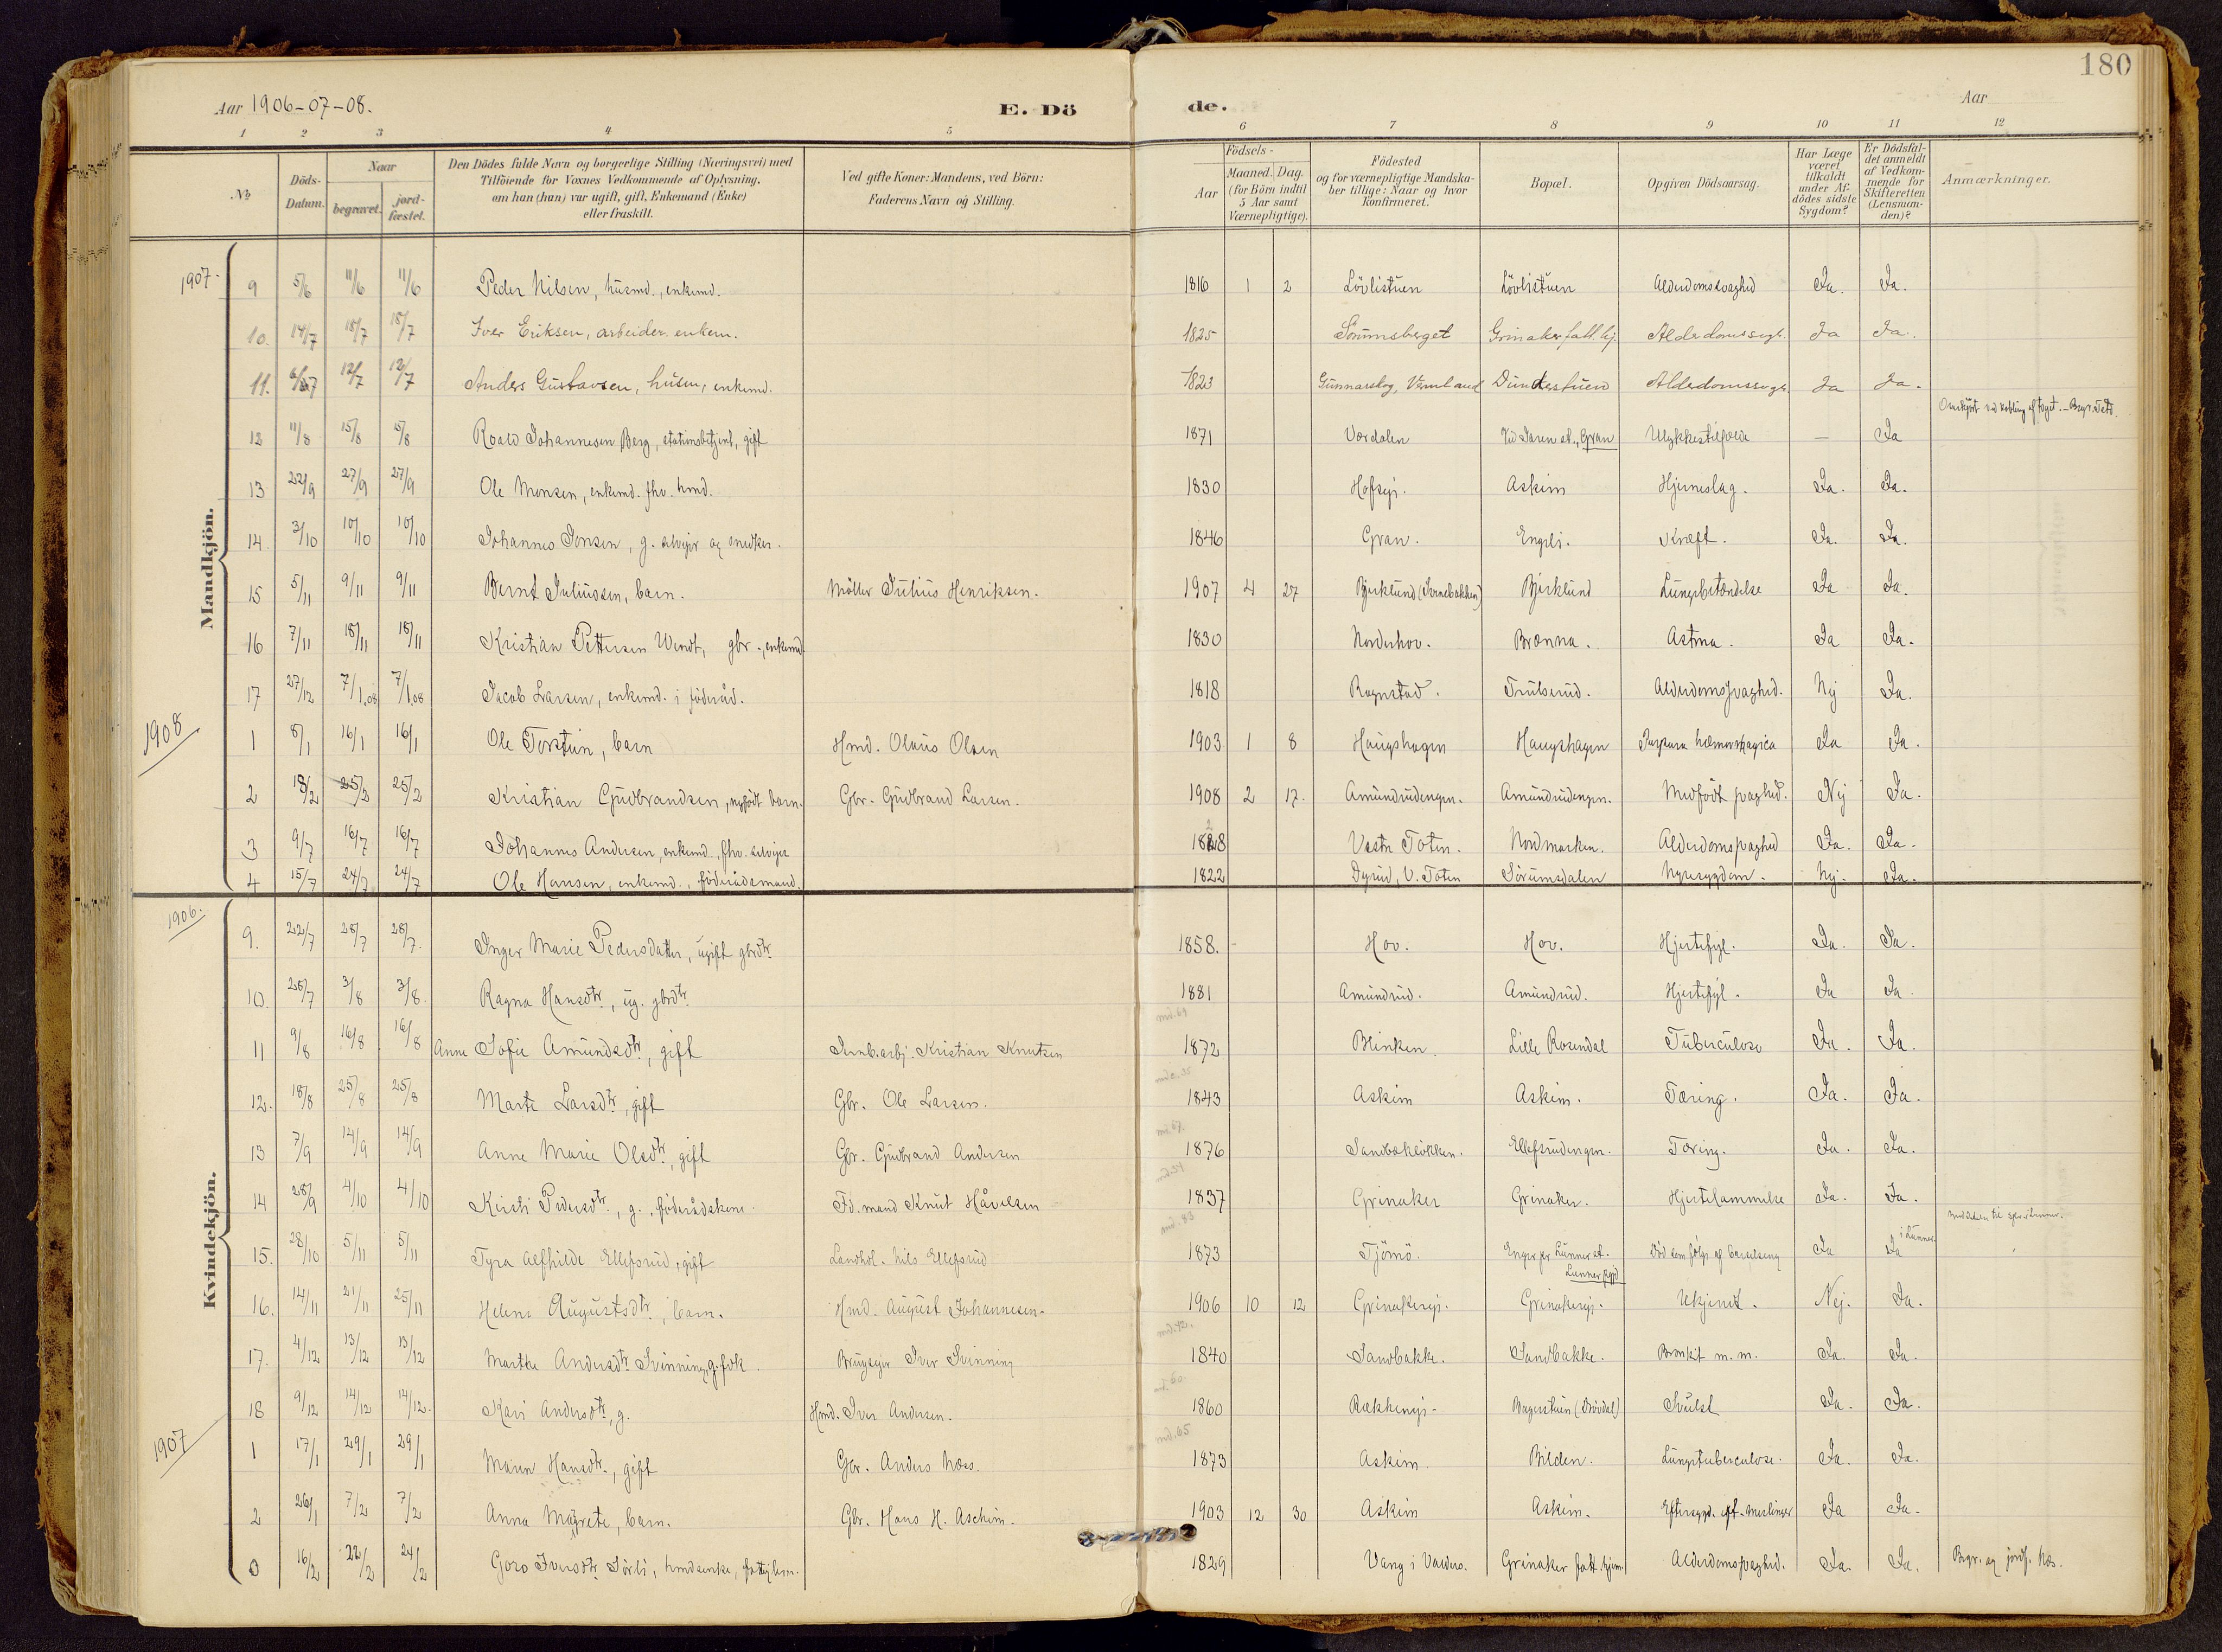 180
Aar 1906-07-08.
E. Döde.
Aar
1 2 3 4 5 6 7 8 9 10 11 12
No
Döds-Datum.
Naar
begravet.
jord-fæstet.
Den Dödes fulde Navn og borgerlige Stilling (Næringsvei) med
Tilföiende for Voxnes Vedkommende af Oplysning,
om han (hun) var ugift, gift, Enkemand (Enke)
eller fraskilt.
Ved gifte Koner: Mandens, ved Börn:
Faderens Navn og Stilling.
Födsels-
Aar
Maaned. Dag.
(for Börn indtil
5 Aar samt
Værnepligtige).
Födested
og for værnepligtige Mandska-
ber tillige: Naar og hvor
konfirmeret.
Bopæl.
Opgiven Dödsaarsag.
Har Læge
været
tilkaldt
under Af-
dödes sidste
Sygdom?
Er Dödsfal-
det anmeldt
af Vedkom-
mende for
Skifteretten
(Lensman-
den)?
Anmærkninger.
Mandkjön.
1907
9 5/6 11/6 11/6 Peder Nilsen, husmd., enkemd. 1816 1 2 Lövlistuen Lövlistuen Alderdomssvaghed Ja. Ja.
10. 14/7 18/7 18/7 Iver Eriksen, arbeider. enkem. 1825 Sonumsberget Grinaker fatt.hj. Alderdomssvgh. Ja Ja.
11. 12/7 12/7 Anders Gustavsen, husm, enkemd. 1823 Gunnarskog, Vermland Alderdomssvgh. Ja Ja.
12 11/8 15/8 15/8 Roald Johannesen Berg, stationsbetjent, gift 1871 Værdalen Ved Jaren st., Gran Ulykkestilfælde — Ja Overkjört ved kobling af toget.
13 22/9 27/9 27/9 Ole Monsen, enkemd. fhv. hmd. 1830 Hofsej. Askim Hjerneslag. Ja. Ja.
14. 3/10 10/10 10/10 Johannes Jonsen, g. selvejer og snedker. 1846 Gran. Engeli. Kræft. Ja. Ja.
15 5/11 9/11 9/11 Bernt Juliussen, barn. Möller Julius Henriksen. 1907 4 27 Bjerklund Bjerklund Lungebetændelse Ja Ja.
16 7/11 18/11 18/11 Kristian Pettersen Wendt, gbr., enkemd. 1830 Norderhov. Brænna. Astma. Ja Ja.
17 27/12 7/1.08 7/1.08 Jacob Larsen, enkemd. i föderåd. 1818 Rognstad. Trulserud. Alderdomssvaghed. Nej Ja.
1908
1 8/1 16/1 16/1 Ole Torstein, barn Hmd. Olaus Olsen 1903 1 8 Haugshagen Haugshagen Purpura hæmorrhagica Ja Ja.
2 18/2 25/2 25/2 Kristian Gudbrandsen, nyfödt barn. Gbr. Gudbrand Larsen. 1908 2 17. Amundrudengen. Amundrudengen. Medfödt svaghed. Nej Ja.
3 9/7 16/7 16/7 Johannes Andersen, enkemd., fhv. selvejer Vestre Toten. Nordmarken. Alderdomssvaghed Ja. Ja.
4 15/7 24/7 24/7 Ole Hansen, enkemd., föderådsmand. 1822 Dyrud, V. Toten Sörumsdalen Nyresygdom. Nej. Ja.
Kvindekjön.
1906.
9. 22/7 28/7 28/7. Inger Marie Pedersdatter, ugift gbrdtr. 1858. Hov. Hov. Hjertefejl. Ja. Ja.
10. 28/7 3/8 3/8. Ragna Hansdtr., ug. gbrdtr. 1881 Amundrud. Amundrud. Hjertefejl. Ja Ja.
11 9/8 16/8 16/8 Anne Sofie Amundsdtr, gift Jernb.arbj. Kristian Knutsen 1872 Blinken. Lille Rosendal Tuberculose Ja. Ja.
12. 18/8 25/8 25/8 Marte Larsdtr, gift Gbr. Ole Larsen. 1843 Askim Askim. Tæring. Ja. Ja.
13 7/9 14/9 14/9 Anne Marie Olsdtr, gift Gbr. Gudbrand Andersen 1876 Sandbakløkken. Ellefsrudengen. Tæring. Ja. Ja.
14 28/9 4/10 4/10 Kirsti Pedersdtr, g., föderådskone. Fd. mand Knut Håvelsen 1837 Grinaker Grinaker. Hjertelammelse Ja. Ja.
15. 28/10 5/11 5/11 Tyra Alfhilde Ellefsrud, gift Landhdl. Nils Ellefsrud 1873 Tjömö. Enger pr Lunner st. Lunner sogn Död som fölge af barselseng Ja Ja i Lunner
16. 14/11 21/11 25/11 Helena Augustsdtr, barn. Hmd. August Johannesen. 1906 10 12 Grinakerej. Grinakerej. Ukjendt. Nej. Ja.
17. 4/12 13/12 13/12 Marthe Andersdtr Svinning, g. folk. Brugsejer Iver Svinning 1840 Sandbakke. Sandbakke. Bronkit m. m. Ja. Ja.
18 9/12 14/12 14/12. Kari Andersdtr, g. Hmd. Iver Andersen. 1860 Rækkeneje. Svulst Ja. Ja.
1907
1 17/1 29/1 29/1 Maren Hansdtr., gift Gbr. Anders Næss. 1873 Askim. Bilden. Lungetuberculose. Ja. Ja.
2 26/1 7/2 7/2 Anna Magrete, barn. Gbr. Hans H. Aschim. 1903 12 30 Askim Askim. Eftersygd. eft. meslinger Ja Ja.
3 16/2 22/2 24/2 Goro Iversdtr Sörli, hmdsenke, fattiglem. 1829 Vang i Valders. Grinaker fatt. hjem. Alderdomssvaghed. Ja. Ja. Begr. og jordf. Næs.